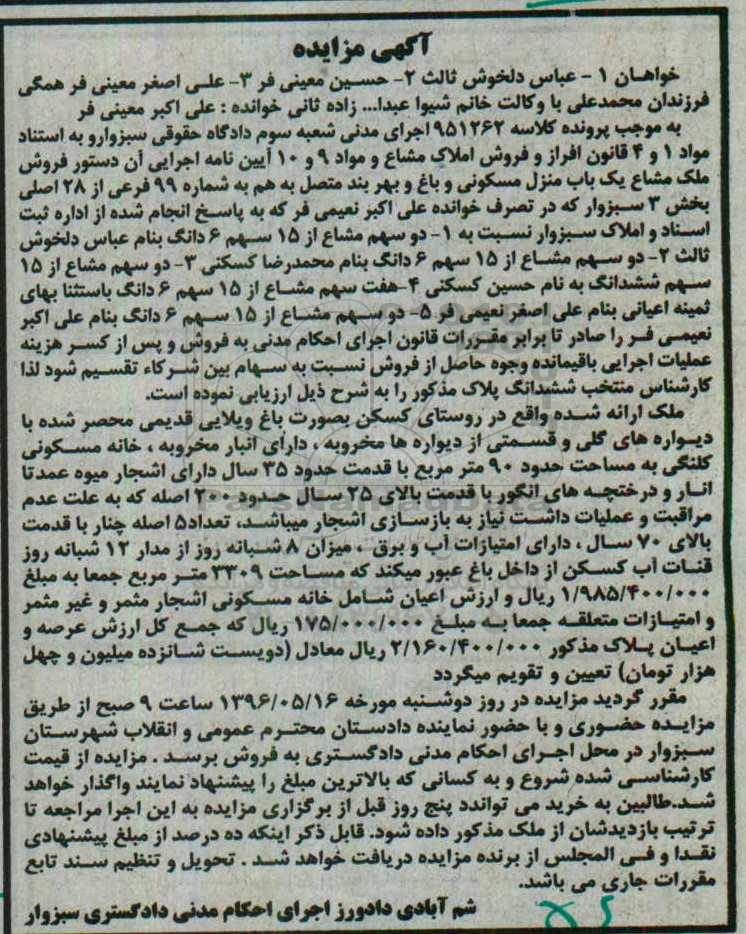 آگهی مزایده
خواهان ۱ - عباس دلخوش ثالث ۲- حسین معینی فر ۳- علی اصغر معینی فر همگی
فرزندان محمدعلی با وکالت خانم شیوا عبدا... زاده ثانی خوانده : علی اکبر معینی فر
به موجب پرونده کلاسه ۹۵۱۲۶۲ اجرای مدنی شعبه سوم دادگاه حقوقی سبزوارو به استناد
مواد ۱ و ۴ قانون افراز و فروش املاک مشاع و مواد ۹ و ۱۰ آیین نامه اجرایی آن دستور فروش
ملک مشاع یک باب منزل مسکونی و باغ و بهر بند متصل به هم به شماره ۹۹ فرعی از ۲۸ اصلی
بخش ۳ سبزوار که در تصرف خوانده علی اکبر نعیمی فر که به پاسخ انجام شده از اداره ثبت
اسناد و املاک سبزوار نسبت به ۱- دو سهم مشاع از ۱۵ سهم ۶ دانگ بنام عباس دلخوش
ثالث ۲- دو سهم مشاع از ۱۵ سهم ۶ دانگ بنام محمدرضا کسکنی ۳- دو سهم مشاع از ۱۵
سهم ششدانگ به نام حسین کسکنی ۴-هفت سهم مشاع از ۱۵ سهم ۶ دانگ باستثنا بهای
ثمینه اعیانی بنام علی اصغر نعیمی فر ۵- دو سهم مشاع از ۱۵ سهم ۶ دانگ بنام علی اکبر
نعیمی فر را صادر تا برابر مقررات قانون اجرای احکام مدنی به فروش و پس از کسر هزینه
عملیات اجرایی باقیمانده وجوه حاصل از فروش نسبت به سهام بین شرکاء تقسیم شود لذا
کارشناس منتخب ششدانگ پلاک مذکور را به شرح ذیل ارزیابی نموده است.
ملک ارائه شده واقع در روستای کسکن بصورت باغ ویلایی قدیمی محصر شده با
دیواره های گلی و قسمتی از دیواره ها مخروبه ، دارای انبار مخروبه ، خانه مسکونی
کلنگی به مساحت حدود ۹۰ متر مربع با قدمت حدود ۳۵ سال دارای اشجار میوه عمدتا
انار و درختچه های انگور با قدمت بالای ۲۵ سال حدود ۲۰۰ اصله که به علت عدم
مراقبت و عملیات داشت نیاز به بازسازی اشجار میباشد، تعداد۵ اصله چنار با قدمت
بالای ۷۰ سال ، دارای امتیازات آب و برق ، میزان ۸ شبانه روز از مدار ۱۲ شبانه روز
قنات آب کسکن از داخل باغ عبور میکند که مساحت ۳۳۰۹ متر مربع جمعا به مبلغ
۱/۹۸۵/۴۰۰/۰۰۰ ریال و ارزش اعیان شامل خانه مسکونی اشجار مثمر و غیر مثمر
و امتیازات متعلقه جمعا به مبلغ ۱۷۵/۰۰۰/۰۰۰ ریال که جمع کل ارزش عرصه و
اعیان پلاک مذکور ۲/۱۶۰/۴۰۰/۰۰۰ ریال معادل (دویست شانزده میلیون و چهل
هزار تومان) تعیین و تقویم میگردد
مقرر گردید مزایده در روز دوشنبه مورخه ۱۳۹۶/۰۵/۱۶ ساعت ۹ صبح از طریق
مزایده حضوری و با حضور نماینده دادستان محترم عمومی و انقلاب شهرستان
سبزوار در محل اجرای احکام مدنی دادگستری به فروش برسد . مزایده از قیمت
کارشناسی شده شروع و به کسانی که بالاترین مبلغ را پیشنهاد نمایند واگذار خواهد
شد.طالبین به خرید می توانندد پنج روز قبل از برگزاری مزایده به این اجرا مراجعه تا
ترتیب بازدیدشان از ملک مذکور داده شود. قابل ذکر اینکه ده درصد از مبلغ پیشنهادی
نقدا و فی المجلس از برنده مزایده دریافت خواهد شد . تحویل و تنظیم سند تابع
مقررات جاری می باشد.
شم آبادی دادورز اجرای احکام مدنی دادگستری سبزوار